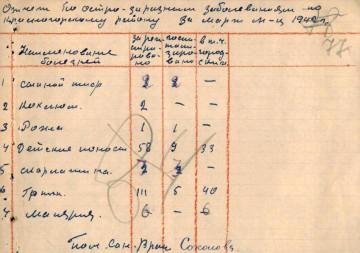 Отчет по остро-заразным заболеваниям по
Красногорскому району за март м-ц 194 г.
Наименование болезней зарегистрировано госпитализировано в т.ч. город
1 сыпной тиф 2 2 —
2 Коклюш. 2 — —
3 Рожа 1 1 —
4 Детские поносы 58 9 33
5 скарлатина. 2 2 —
6 Грипп. 111 5 40
7 малярия. 6 — 6
Сан. Врач Соколова